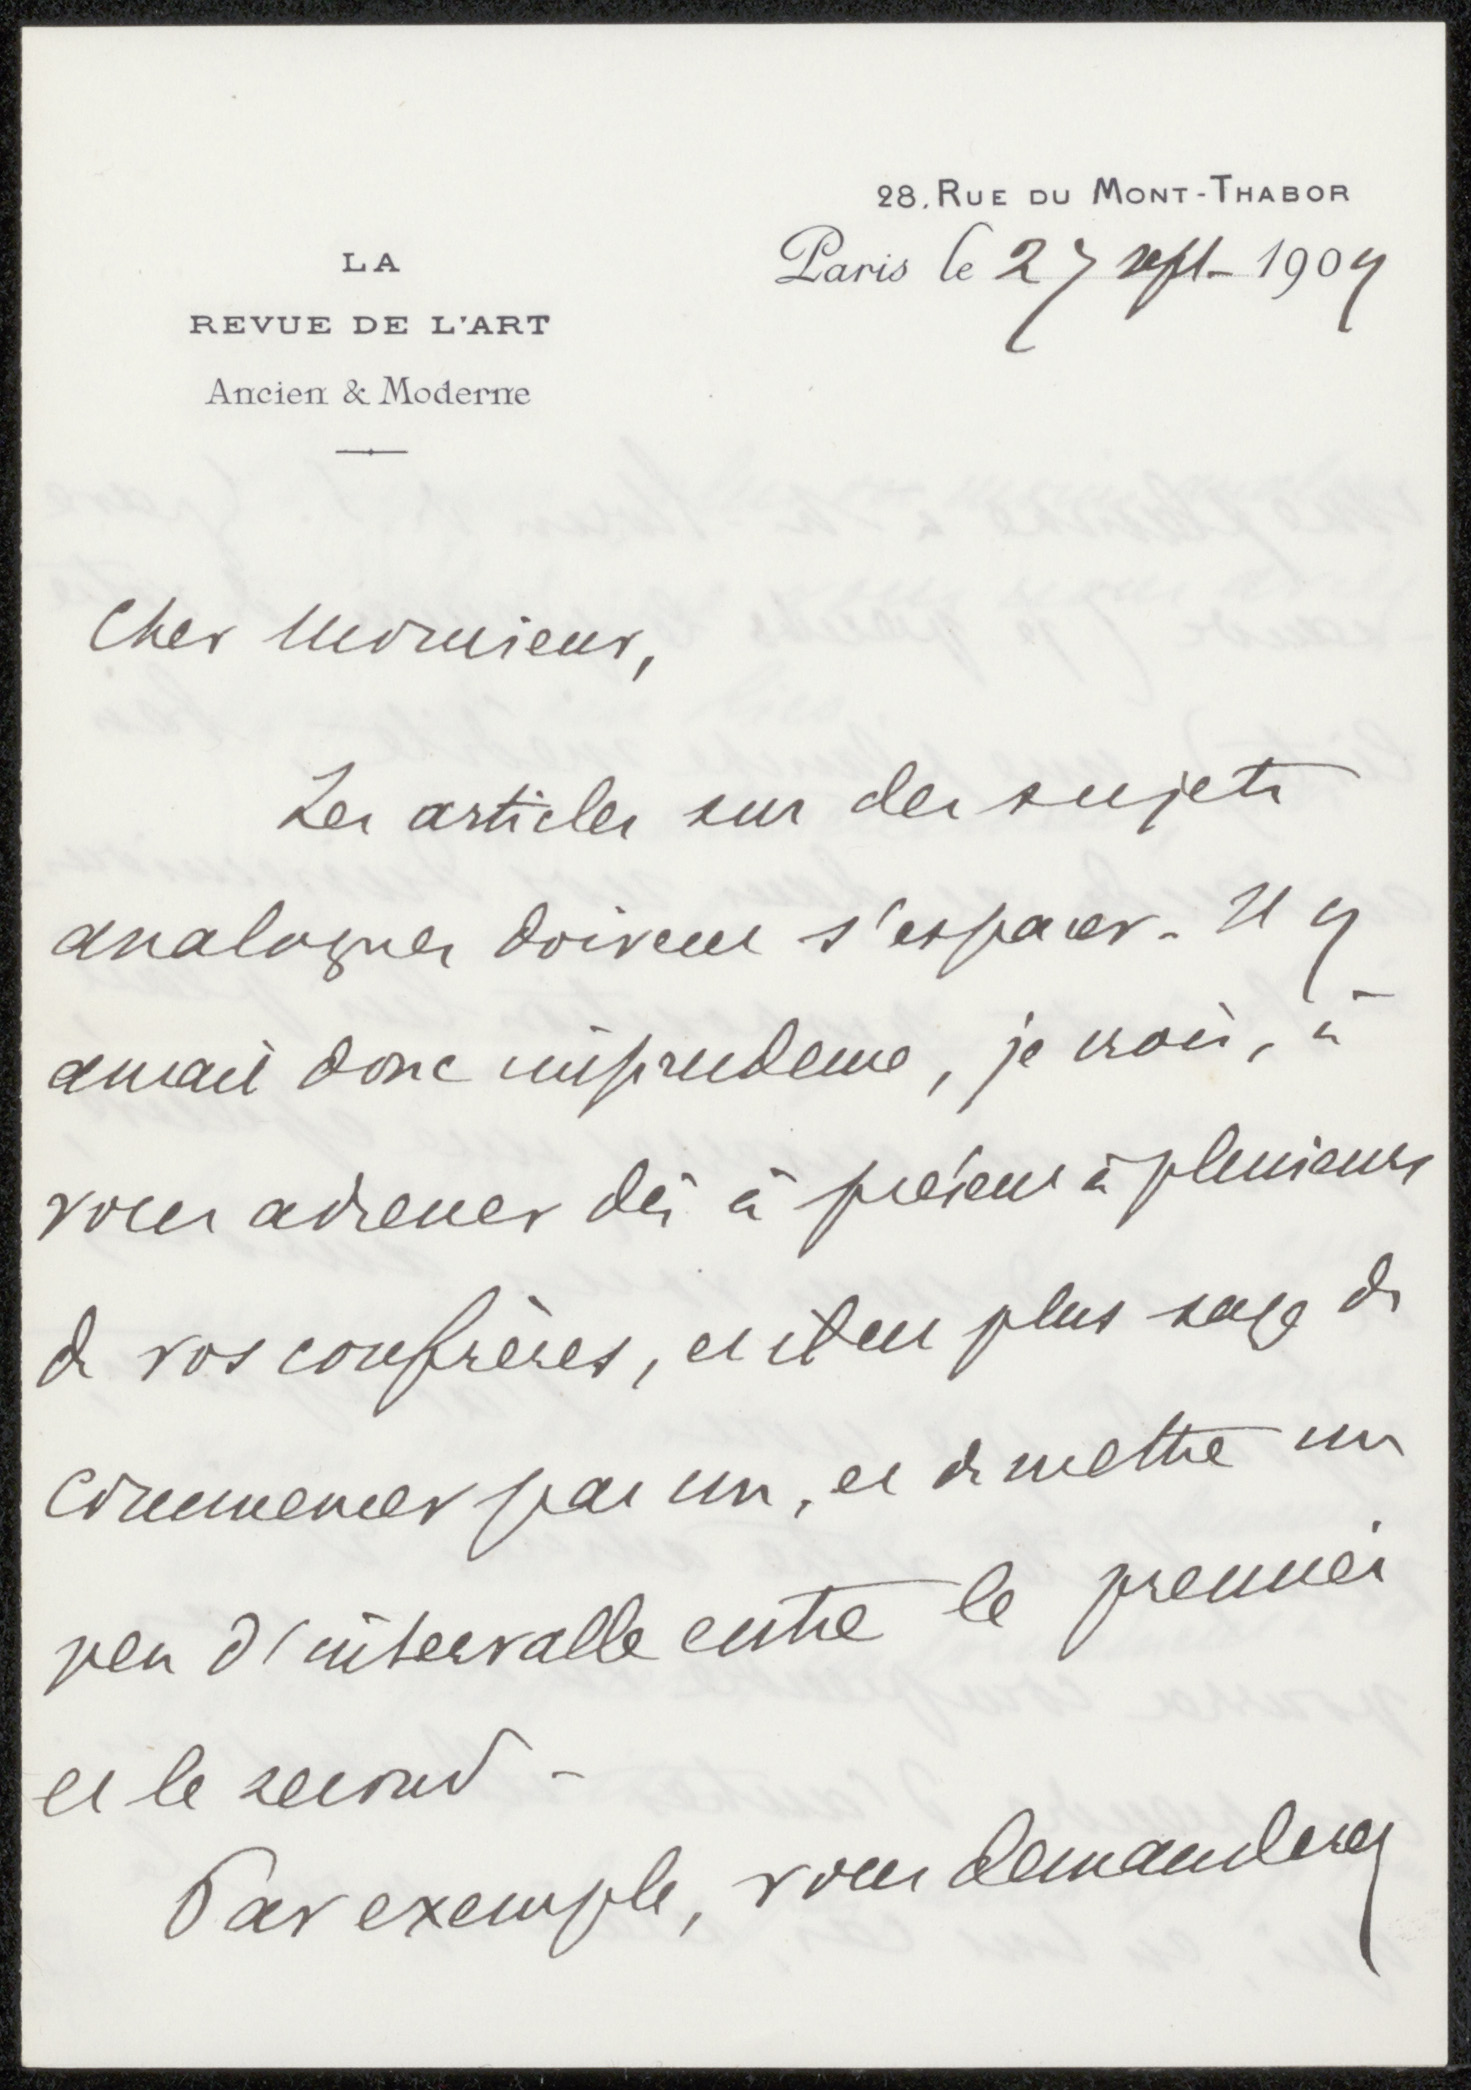 28, RUE DU MONT-THABOR
Paris le 27 sept. 1904
LA
REVUE DE L'ART
Ancien & Moderne
Cher Monsieur,
Les articles sur des sujets
analogues doivent s'espacer. Il y
aurait donc imprudence, je crois, à
vous adresser dès à présent à plusieurs
de vos confrères, et il est plus sage de
commencer par un, et de mettre un
peu d'intervalle entre le premier
et le second -
Par exemple, vous demanderez